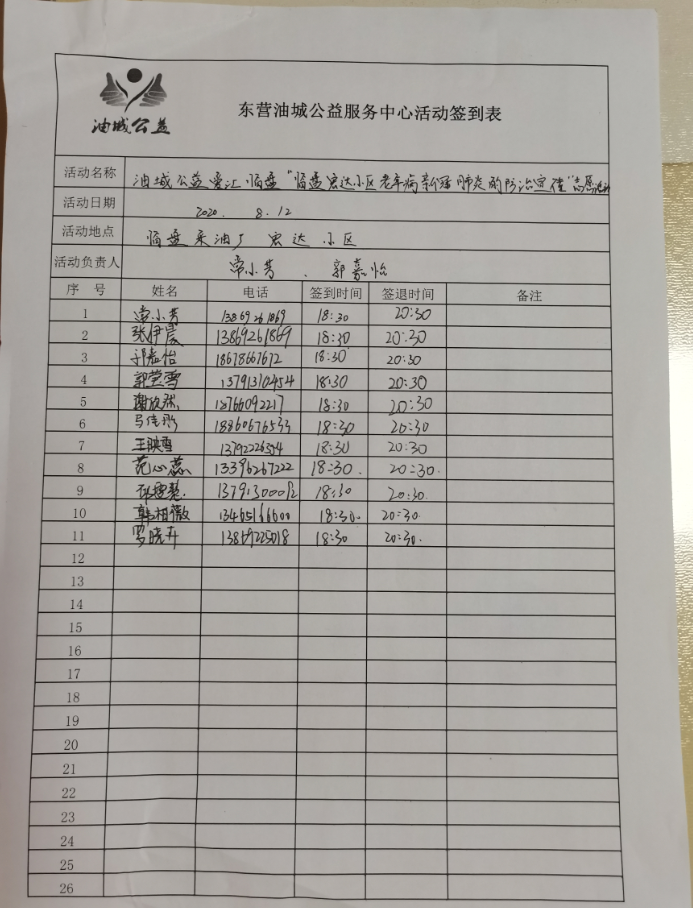 油城公益
东营油城公益服务中心活动签到表
活动名称 油城公益爱汇临盘"临盘宏达小区老年病新冠肺炎的防治宣传"志愿活动
活动日期 2020. 8.12
活动地点 临盘采油厂 宏达 小区
活动负责人 常小芳 、 郭嘉怡
序 号 姓名 电话 签到时间 签退时间 备注
1 常小芳 13869261869 18:30 20:30
2 张伊晨 13869261869 18:30 20:30
3 18678667672 18:30 20:30
4 13791310454 18:30 20:30
5 18766092217 18:30 20:30
6 马佳彤 18860676533 18:30 20:30
7 王映雪 18:30 20:30
8 范心蕊 13396267222 18:30. 20:30.
9 18:30 20:30.
10 韩相薇 13465166600 18:30. 20:30.
11 罗晓卉 13869225018 18:30 20:30.
12
13
14
15
16
17
18
19
20
21
22
23
24
25
26